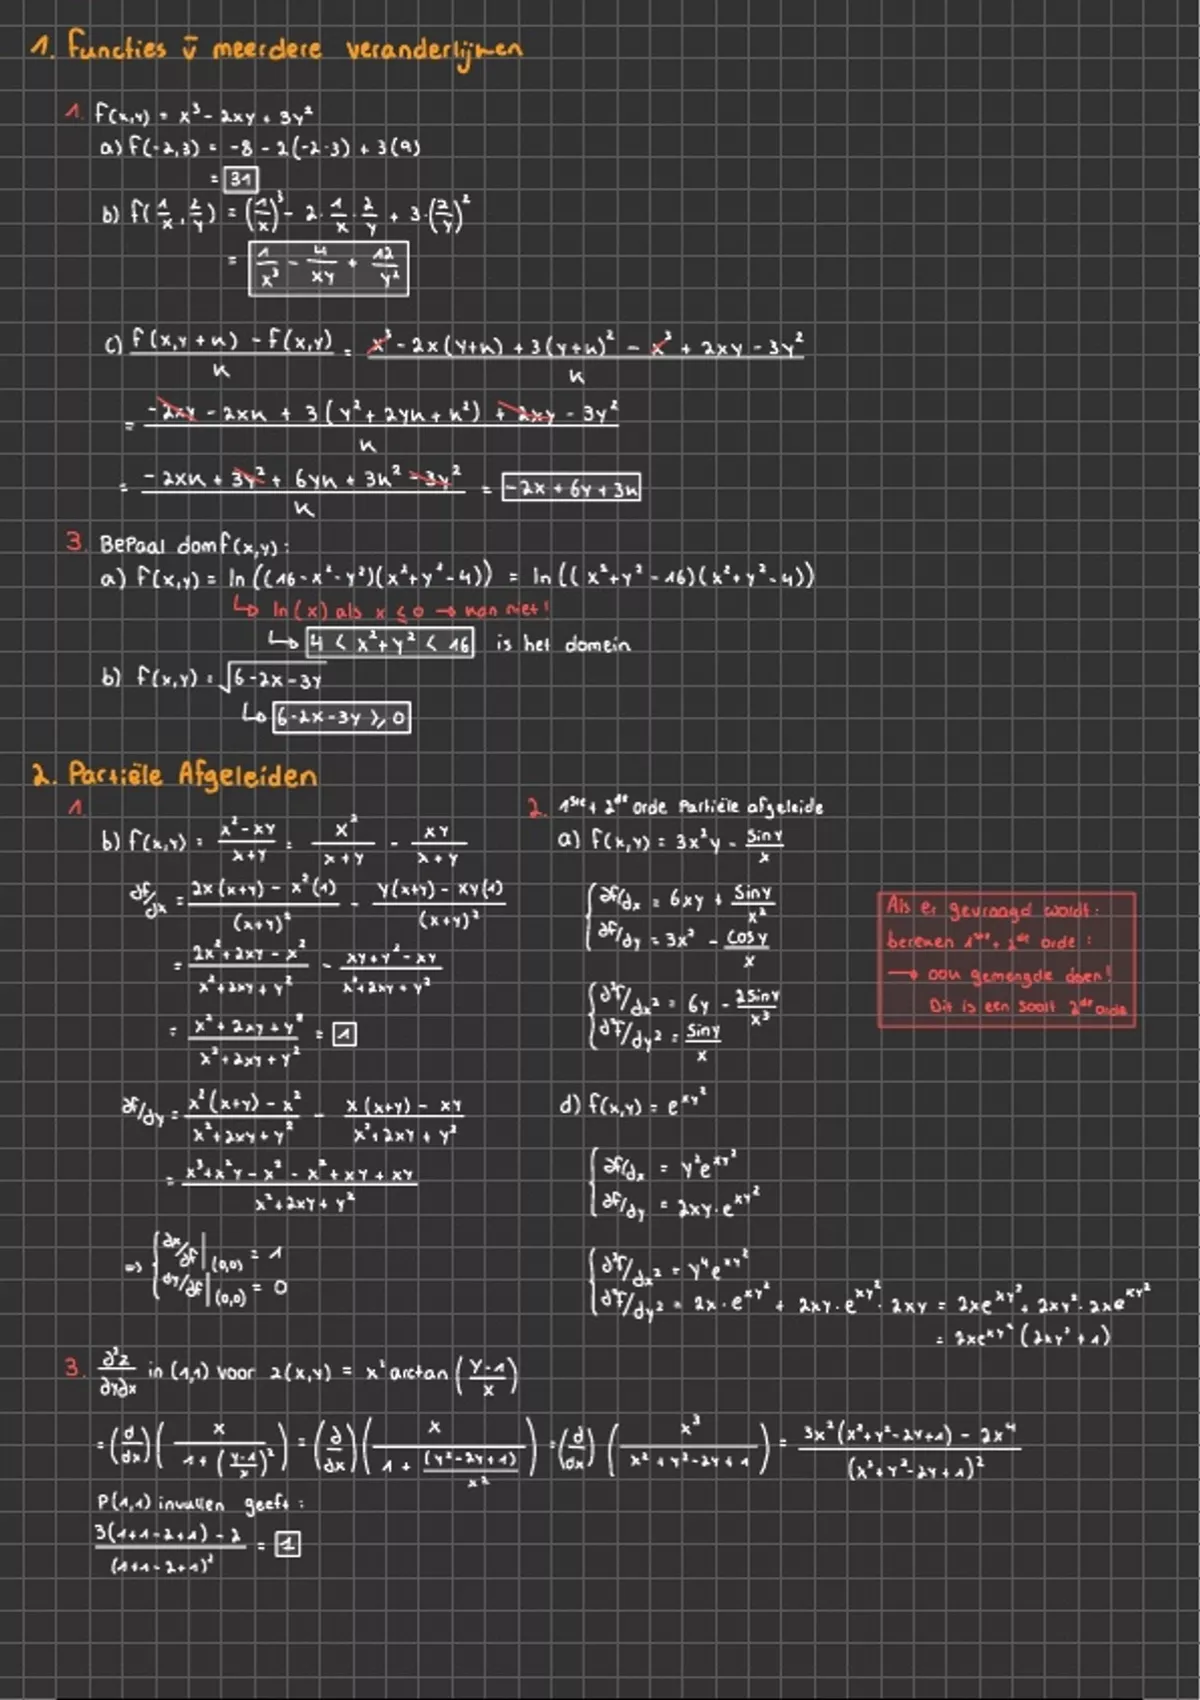 1. Functies v̄ meerdere veranderlijken
1. f(x,y) = x³ - 2xy + 3y²
a) f(-2,3) = -8 - 2(-2·3) + 3(9)
= 31
b) f(1/x, 2/y) = (1/x)³ - 2·1/x·2/y + 3·(2/y)²
= 1/x³ - 4/xy + 12/y²
c) (f(x,y+k) - f(x,y))/k = (x³ - 2x(y+k) + 3(y+k)² - x³ + 2xy - 3y²)/k
= (-2xy - 2xk + 3(y² + 2yk + k²) + 2xy - 3y²)/k
= (-2xk + 3y² + 6yk + 3k² - 3y²)/k = -2x + 6y + 3k
3. Bepaal domf(x,y):
a) f(x,y) = ln((16-x²-y²)(x²+y²-4)) = ln((x²+y²-16)(x²+y²-4))
↳ ln(x) als x ≤ 0 → kan niet!
↳ 4 < x²+y² < 16 is het domein
b) f(x,y) = √(6-2x-3y)
↳ 6-2x-3y ≥ 0
2. Partiële Afgeleiden
1.
b) f(x,y) = (x²-xy)/(x+y) = x²/(x+y) - xy/(x+y)
∂f/∂x = (2x(x+y) - x²(1))/(x+y)² - (y(x+y) - xy(1))/(x+y)²
= (2x²+2xy-x²)/(x²+2xy+y²) - (xy+y²-xy)/(x²+2xy+y²)
= (x²+2xy+y²)/(x²+2xy+y²) = 1
∂f/∂y = (x²(x+y) - x²)/(x²+2xy+y²) - (x(x+y) - xy)/(x²+2xy+y²)
= (x³+x²y-x²-x²+xy+xy)/(x²+2xy+y²)
⇒ { ∂x/∂f|(0,0) = 1
∂y/∂f|(0,0) = 0
2. 1ste + 2de orde Partiële afgeleide
a) f(x,y) = 3x²y - sin y/x
{ ∂f/∂x = 6xy + sin y/x²
∂f/∂y = 3x² - cos y/x
{ ∂²f/∂x² = 6y - 2sin y/x³
∂²f/∂y² = sin y/x
Als er gevraagd wordt:
berekenen 1ste + 2de orde:
→ ook gemengde doen!
Dit is een soort 2de orde
d) f(x,y) = e^(xy²)
{ ∂f/∂x = y²e^(xy²)
∂f/∂y = 2xy·e^(xy²)
{ ∂²f/∂x² = y⁴e^(xy²)
∂²f/∂y² = 2x·e^(xy²) + 2xy·e^(xy²)·2xy = 2xe^(xy²) + 2xy²·2xe^(xy²)
= 2xe^(xy²)(2xy²+1)
3. ∂²z/∂y∂x in (1,1) voor z(x,y) = x² arctan((y-1)/x)
= (d/dx)(x/(1+((y-1)/x)²)) = (∂/∂x)(x/(1+(y²-2y+1)/x²)) = (d/dx)(x³/(x²+y²-2y+1)) = (3x²(x²+y²-2y+1) - 2x⁴)/(x²+y²-2y+1)²
P(1,1) invullen geeft:
(3(1+1-2+1) - 2)/(1+1-2+1)² = 1